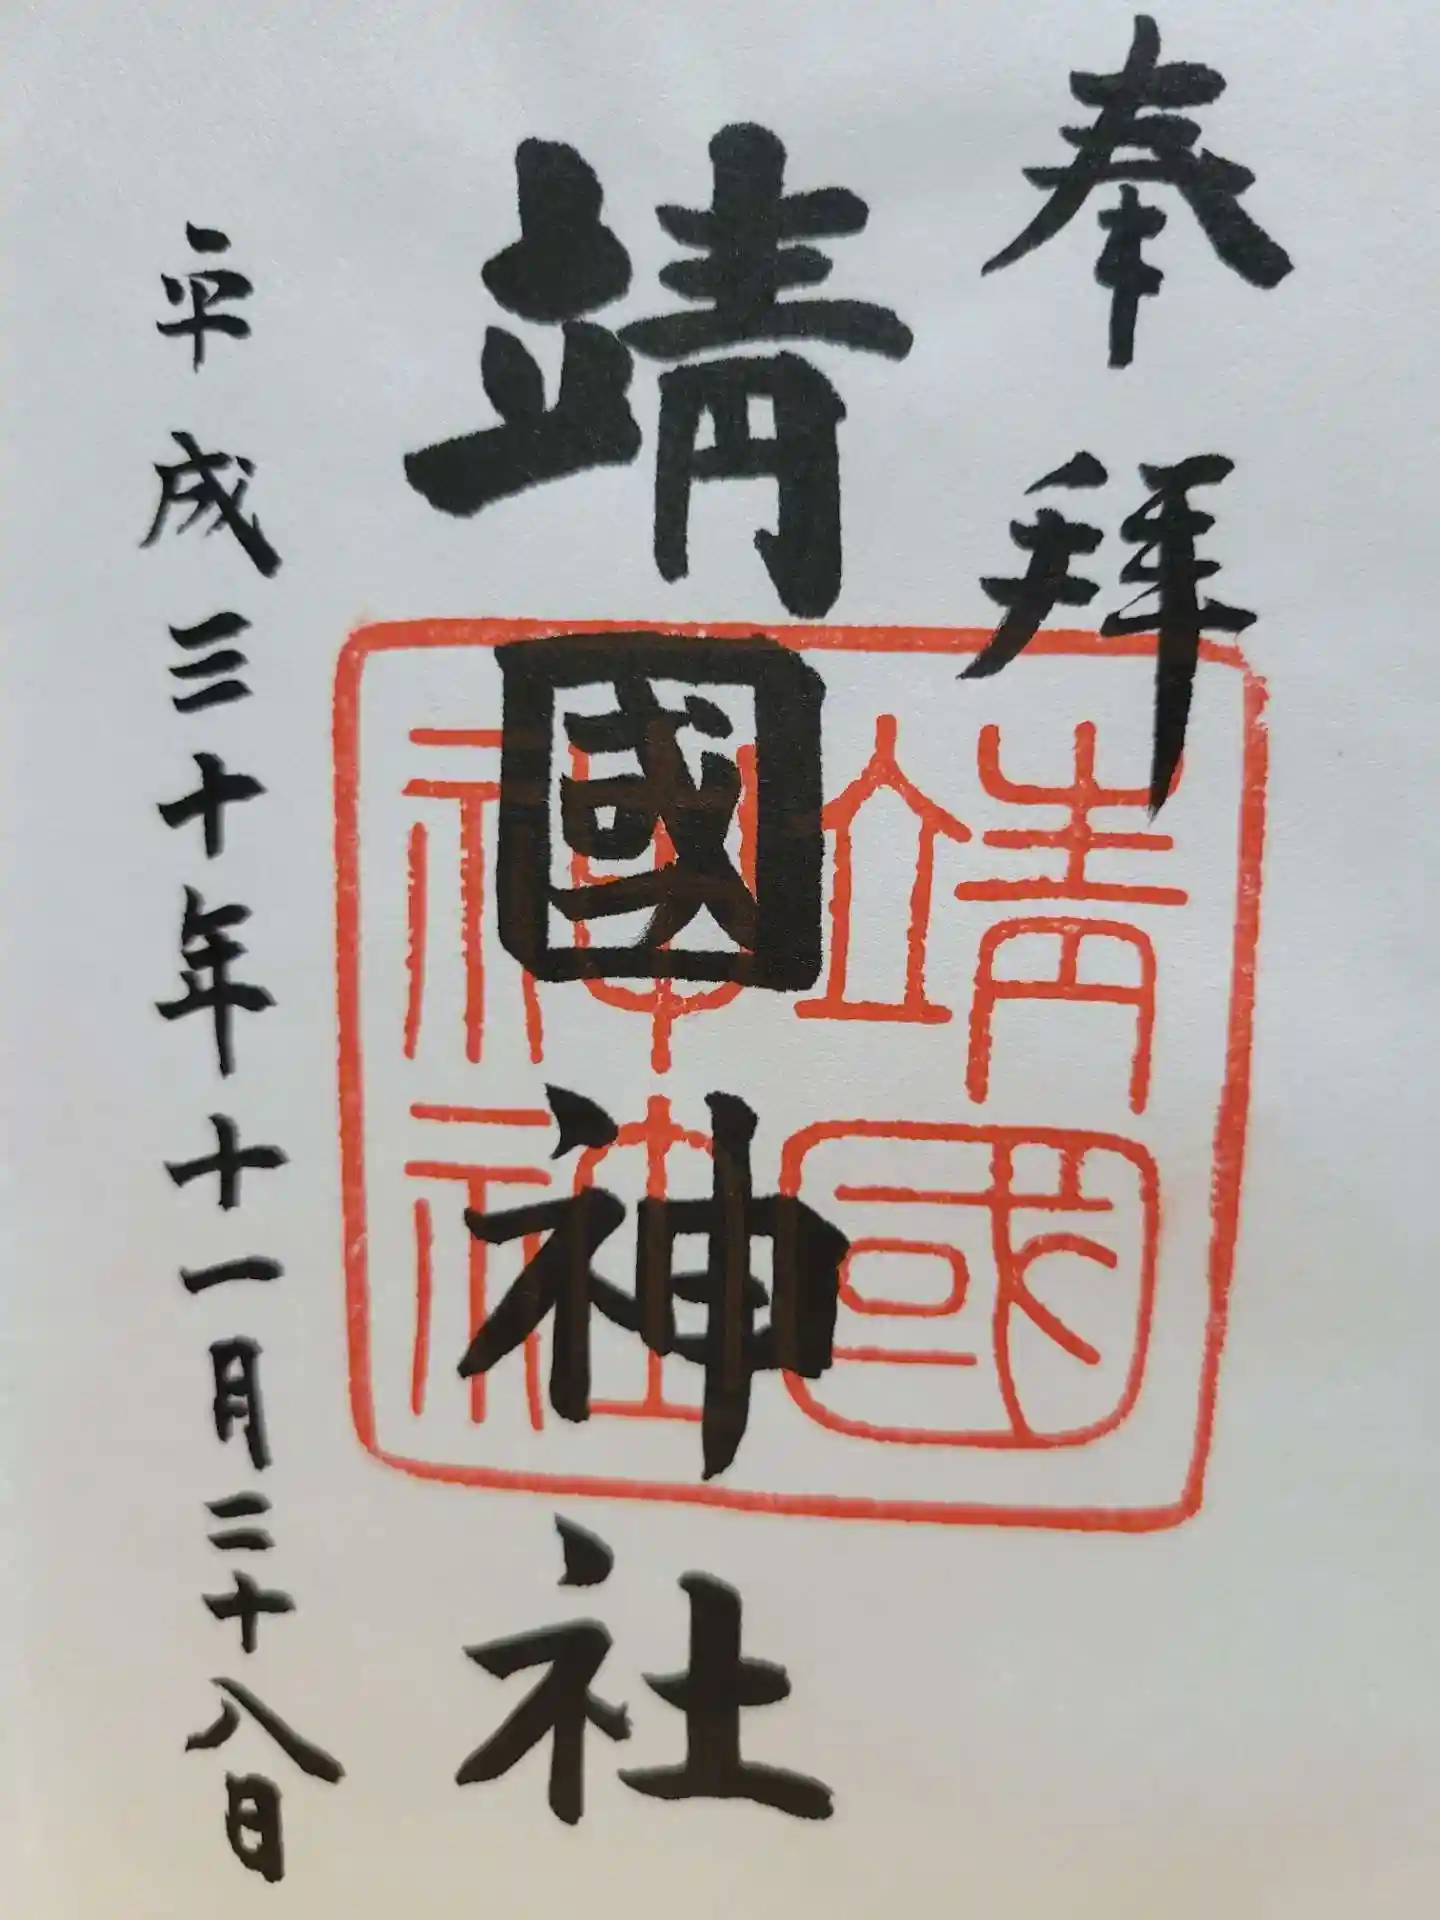 奉拜
靖國神社
靖國
神社
平成三十年十一月二十八日